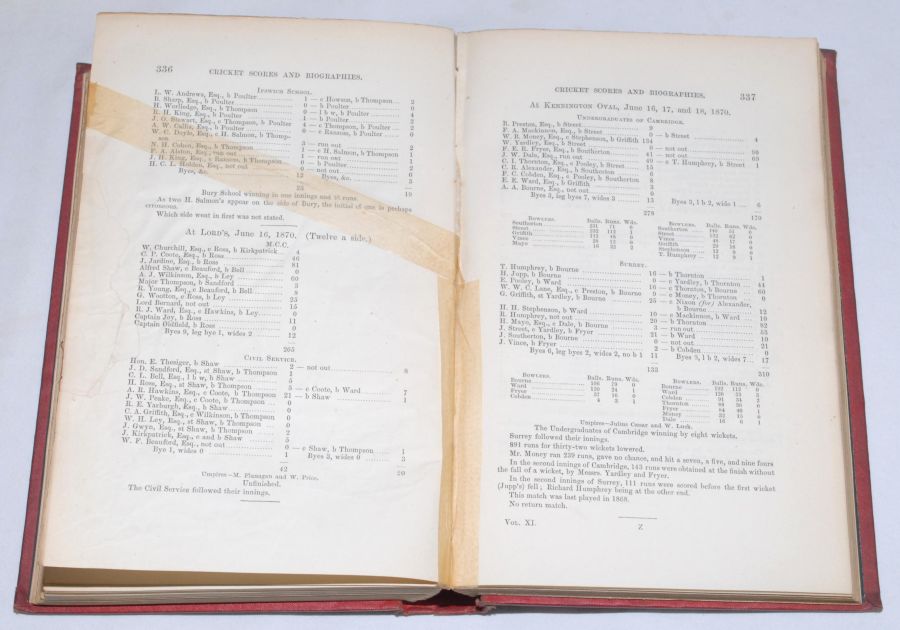 336
CRICKET SCORES AND BIOGRAPHIES.
IPSWICH SCHOOL.
L. W. Andrews, Esq., b Poulter 1 — c Howson, b Thompson 2
B. Sharp, Esq., b Poulter 0 — b Poulter 2
H. Worlledge, Esq., b Thompson 0 — l b w, b Poulter 4
R. H. King, Esq., b Poulter 1 — b Poulter 2
J. G. Stewart, Esq., c Thompson, b Poulter 4 — c Thompson, b Poulter 2
A. W. Callis, Esq., b Poulter 0 — c Ransom, b Poulter 0
W. C. Doyle, Esq., c H. Salmon, b Thomp-
son 3 — run out 2
N. H. Cohen, Esq., b Thompson 1 — c H. Salmon, b Thompson 1
F. A. Alston, Esq., run out 1 — run out 1
J. H. King, Esq., c Ransom, b Thompson 0 — b Poulter 2
H. C. L. Holden, Esq., not out 0 — not out 6
Byes, &c. 12 Byes, &c. 3
23 19
Bury School winning in one innings and runs.
As two H. Salmon's appear on the side of Bury, the initial of one is perhaps
erroneous.
Which side went in first was not stated.
AT LORD'S, June 16, 1870. (Twelve a side.)
M.C.C.
W. Churchill, Esq., c Ross, b Kirkpatrick
C. P. Coote, Esq., b Ross 46
J. Jardine, Esq., b Ross 81
Alfred Shaw, c Beauford, b Bell 0
A. J. Wilkinson, Esq., b Ley 60
Major Thompson, b Sandford 3
R. Young, Esq., c Beauford, b Bell 8
G. Wootton, c Ross, b Ley 25
Lord Bernard, not out 15
R. J. Ward, Esq., c Hawkins, b Ley 0
Captain Joy, b Ross 11
Captain Oldfield, b Ross 0
Byes 9, leg bye 1, wides 2 12
265
CIVIL SERVICE.
Hon. E. Thesiger, b Shaw 2 — not out 8
J. D. Sandford, Esq., st Shaw, b Thompson 1
C. L. Bell, Esq., l b w, b Shaw 5
H. Ross, Esq., st Shaw, b Thompson 5
A. R. Hawkins, Esq., c Coote, b Thompson 0 — c Coote, b Ward 7
J. W. Peake, Esq., c Coote, b Thompson 21 — b Shaw 1
R. E. Yarburgh, Esq., b Shaw 0
C. A. Griffith, Esq., c Wilkinson, b Thompson 0
W. H. Ley, Esq., st Shaw, b Thompson 0
J. Gwyn, Esq., st Shaw, b Thompson 2
J. Kirkpatrick, Esq., c and b Shaw 5
W. F. Beauford, Esq., not out 0 — c Shaw, b Thompson 1
Bye 1, wides 0 1 Byes 3, wides 0 3
42 20
Umpires—M. Flanagan and W. Price.
Unfinished.
The Civil Service followed their innings.
CRICKET SCORES AND BIOGRAPHIES. 337
AT KENNINGTON OVAL, June 16, 17, and 18, 1870.
UNDERGRADUATES OF CAMBRIDGE.
R. Preston, Esq., b Street 9
F. A. Mackinnon, Esq., b Street 0 — b Street 4
W. B. Money, Esq., c Stephenson, b Griffith 134
W. Yardley, Esq., b Street 0 — not out 90
F. E. R. Fryer, Esq., b Southerton 41 — not out 60
J. W. Dale, Esq., run out 40
C. I. Thornton, Esq., c Pooley, b Street 15 — c T. Humphrey, b Street 1
C. R. Alexander, Esq., b Southerton 6
F. C. Cobden, Esq., c Pooley, b Southerton 8
E. E. Ward, Esq., b Griffith 3
A. A. Bourne, Esq., not out 0
Byes 3, leg byes 7, wides 3 13 Byes 3, l b 2, wide 1 6
279 170
BOWLERS. Balls. Runs. Wds. BOWLERS. Balls. Runs. Wds.
Southerton 231 71 0 Southerton 140 51 0
Street Street
Griffith 232 112 1 Vince 48 17 0
Vince Griffith
Mayo 16 22 2 Stephenson
T. Humphrey 12 9 1
SURREY.
T. Humphrey, b Bourne 16 — b Thornton 1
H. Jupp, b Bourne 0 — c Yardley, b Thornton 44
E. Pooley, b Ward 0 — c Thornton, b Bourne 60
W. W. C. Lane, Esq., c Preston, b Bourne 9 — c Money, b Thornton 0
G. Griffith, st Yardley, b Bourne 25 — c Nixon (for) Alexander,
b Bourne 12
H. H. Stephenson, b Ward 10 — c Mackinnon, b Ward 10
R. Humphrey, not out 20 — b Thornton 82
H. Mayo, Esq., c Dale, b Bourne 3 — run out 53
J. Street, c Yardley, b Fryer 21 — b Ward 10
J. Southerton, b Bourne 0 — not out 21
J. Vince, b Fryer 2 — b Cobden 0
Byes 6, leg byes 2, wides 2, no b 1 11 Byes 8, l b 2, wids 7 17
133 310
BOWLERS. Balls. Runs. Wds. BOWLERS. Balls. Runs. Wds.
Bourne 156 79 0 Bourne 192 112 0
Ward 120 24 1 Ward
Fryer 32 16 0 Cobden 91 34 2
Cobden 4 3 1 Thornton
Fryer 84 46 1
Money 32 15 0
Dale 16 6 1
Umpires—Julius Cæsar and W. Luck.
The Undergraduates of Cambridge winning by eight wickets.
Surrey followed their innings.
891 runs for thirty-two wickets lowered.
Mr. Money ran 239 runs, gave no chance, and hit a seven, a five, and nine fours
In the second innings of Cambridge, 143 runs were obtained at the finish without
the fall of a wicket, by Messrs. Yardley and Fryer.
In the second innings of Surrey, 111 runs were scored before the first wicket
(Jupp's) fell; Richard Humphrey being at the other end.
This match was last played in 1868.
No return match.
VOL. XI. Z